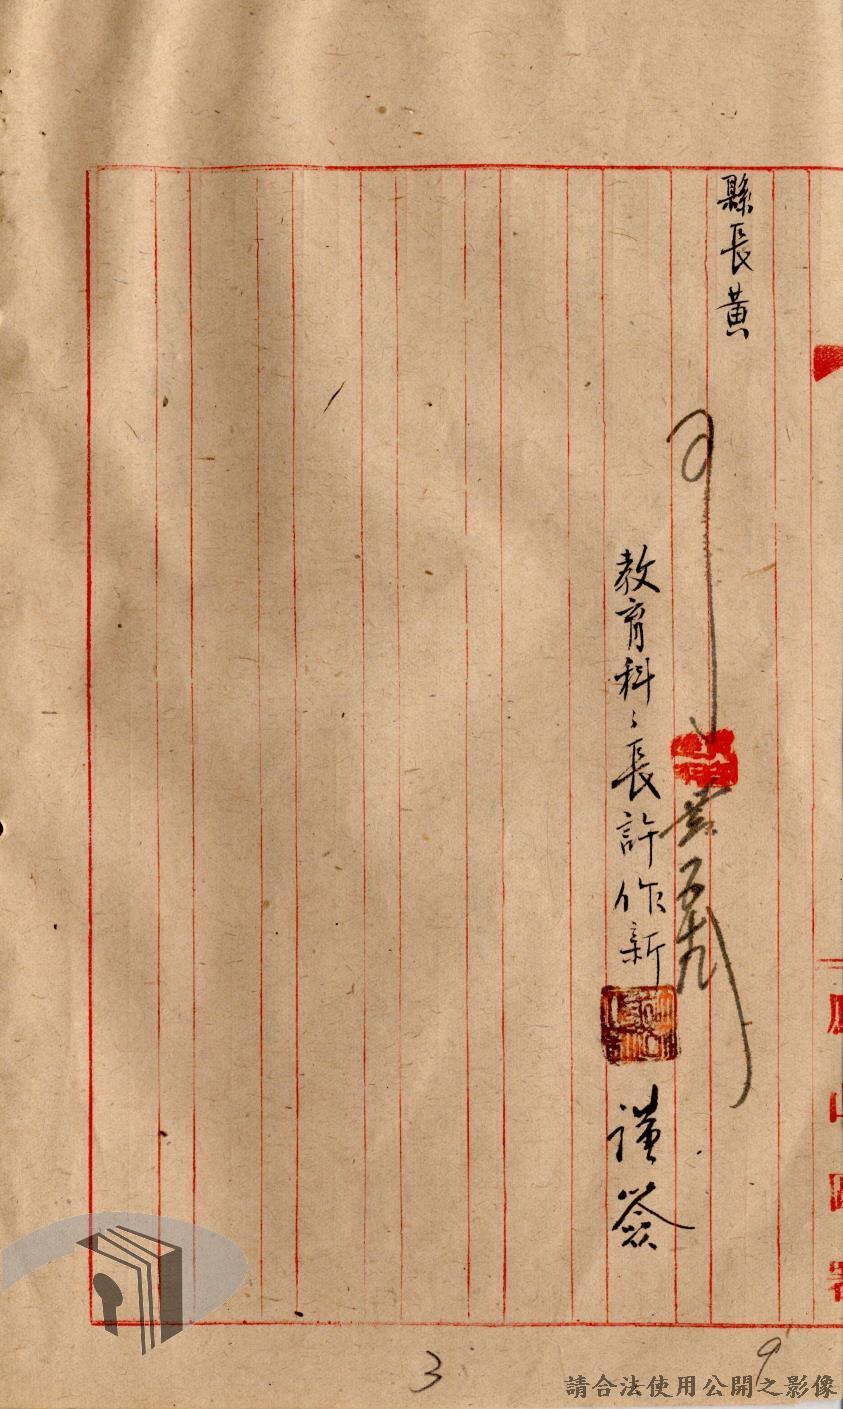 縣長黃
可
黃 五、十九
教育科々長許作新
謹簽
3
9
請合法使用公開之影像